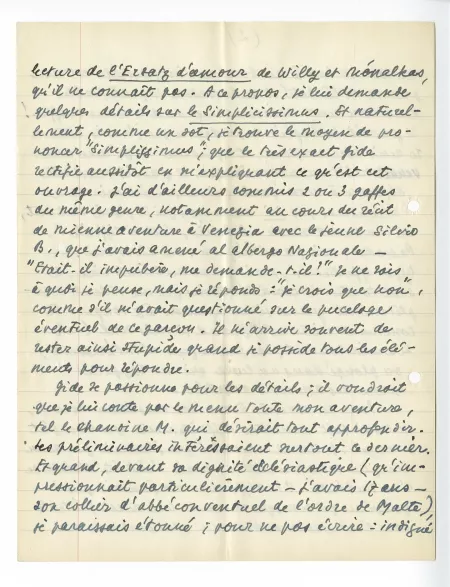 lecture de l'Ersatz d'amour de Willy et Ménalkas,
qu'il ne connaît pas. A ce propos, je lui demande
quelques détails sur le Simplicissimus. Et naturel-
lement, comme un sot, je trouve le moyen de pro-
noncer "Simplissimus"; que le très exact Gide
rectifie aussitôt en m'expliquant ce qu'est cet
ouvrage. J'ai d'ailleurs commis 2 ou 3 gaffes
du même genre, notamment au cours du récit
de mienne aventure à Venezia avec le jeune Silvio
B., que j'avais amené al albergo Nazionale —
"Etait-il impubère, me demande-t-il!" Je ne sais
à quoi je pense, mais je réponds : "je crois que non",
comme s'il m'avait questionné sur le pucelage
éventuel de ce garçon. Il m'arrive souvent de
rester ainsi stupide quand je possède tous les élé-
ments pour répondre.
Gide se passionne pour les détails ; il voudrait
que je lui conte par le menu toute mon aventure,
tel le chanoine M. qui désirait tout approfondir.
Les préliminaires intéressaient surtout ce dernier.
Et quand, devant sa dignité ecclésiastique (qu'im-
pressionnait particulièrement — j'avais 17 ans —
son collier d'abbé conventuel de l'ordre de Malte),
je paraissais étonné ; pour ne pas écrire : indigné